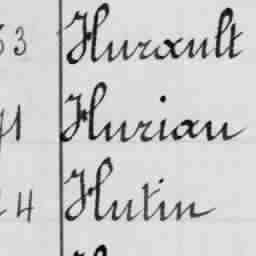 33 Hurault
41 Huriau
24 Hutin